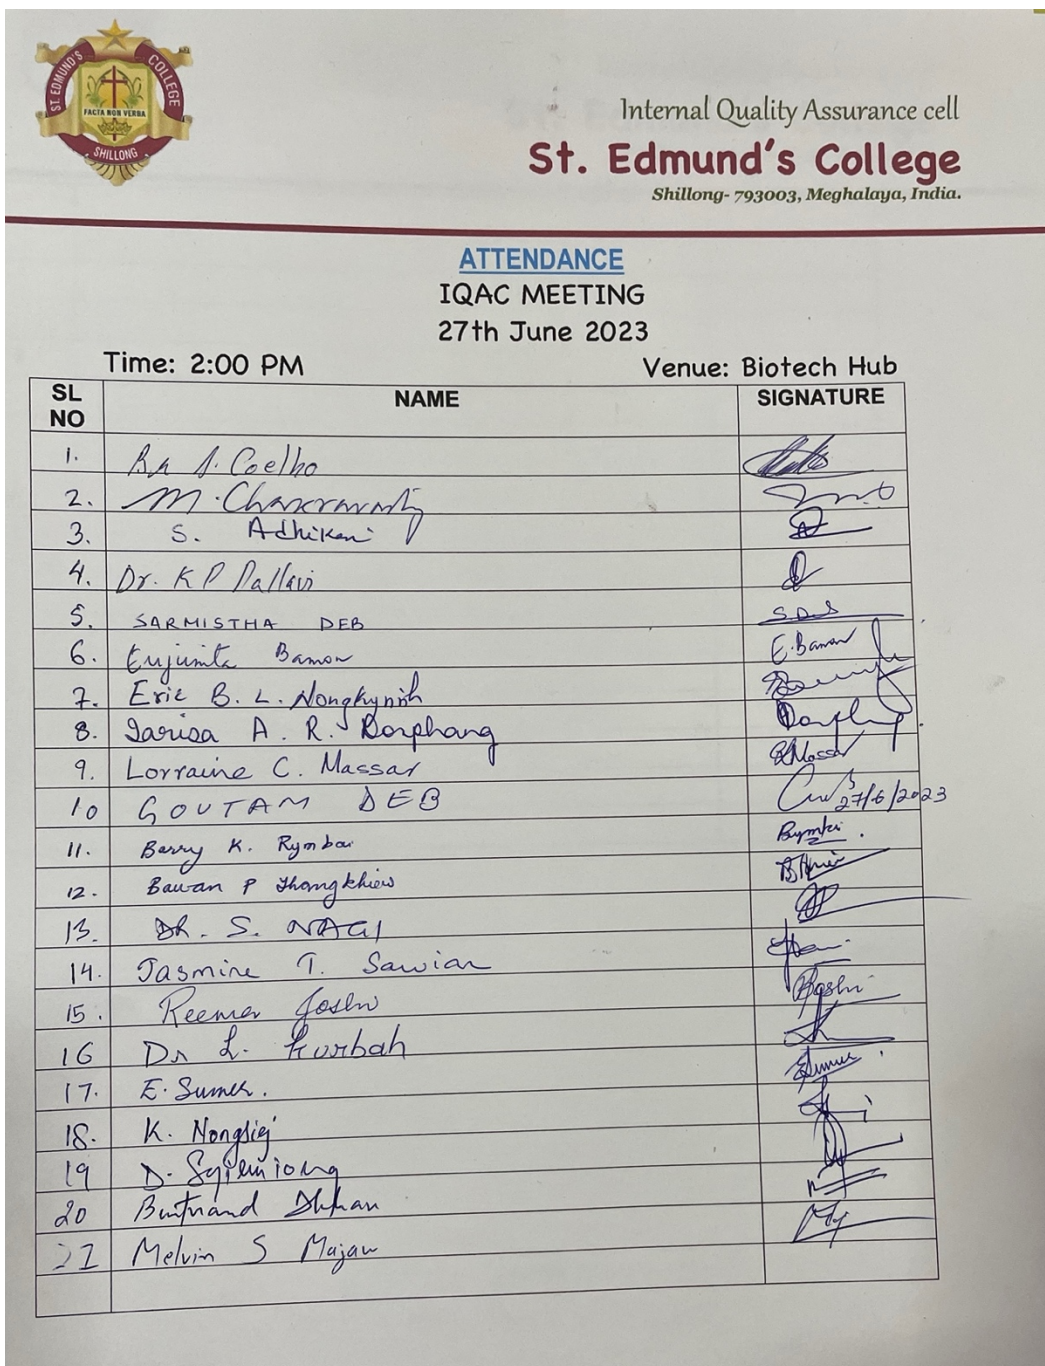 ST. EDMUND'S COLLEGE
FACTA NON VERBA
SHILLONG
Internal Quality Assurance cell
St. Edmund's College
Shillong- 793003, Meghalaya, India.
ATTENDANCE
IQAC MEETING
27th June 2023
Time: 2:00 PM Venue: Biotech Hub
SL NO NAME SIGNATURE
1. A. Coelho
2. M. Chakravarty
3. S. Adhikari
4. Dr. K P Pallavi
5. SARMISTHA DEB
6. Eujunita Bamon E. Bamon
7. Eric B. L. Nongkynrih
8. Iarisa A. R. Dorphang
9. Lorraine C. Massar Massar
10 GOUTAM DEB 27/6/2023
11. Barry K. Rymbai
12. Bawan P Thongkhiew
13. DR. S. NAGI
14. Jasmine T. Sawian
15. Reema Joshi
16 Dr L. Kurbah
17. E. Sumer.
18. K. Nongsiej
19 D. Syiemiong
20 Dkhar
21 Melvin S Majaw